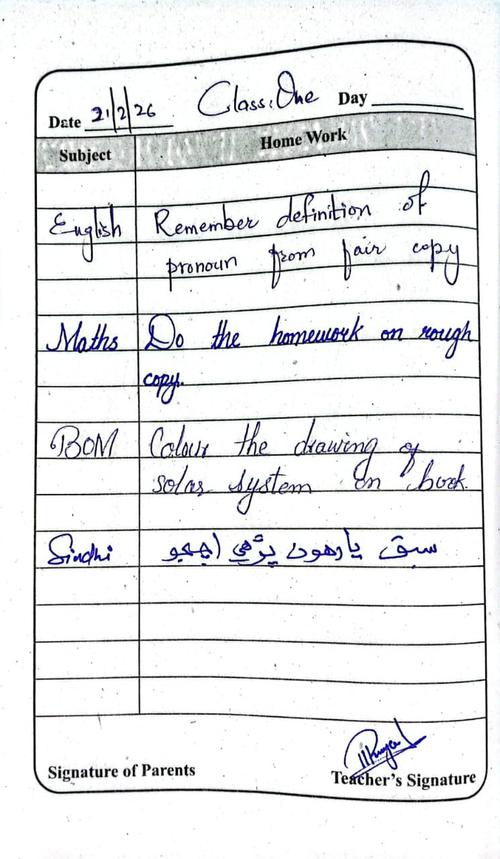 Date 21/2/26 Class: One Day
Subject Home Work
English Remember definition of
pronoun from fair copy
Maths Do the homework on rough
copy.
BOM Colour the drawing of
solar system on book.
Sindhi سبق يارهون پڙهي اچجو
Signature of Parents Teacher's Signature